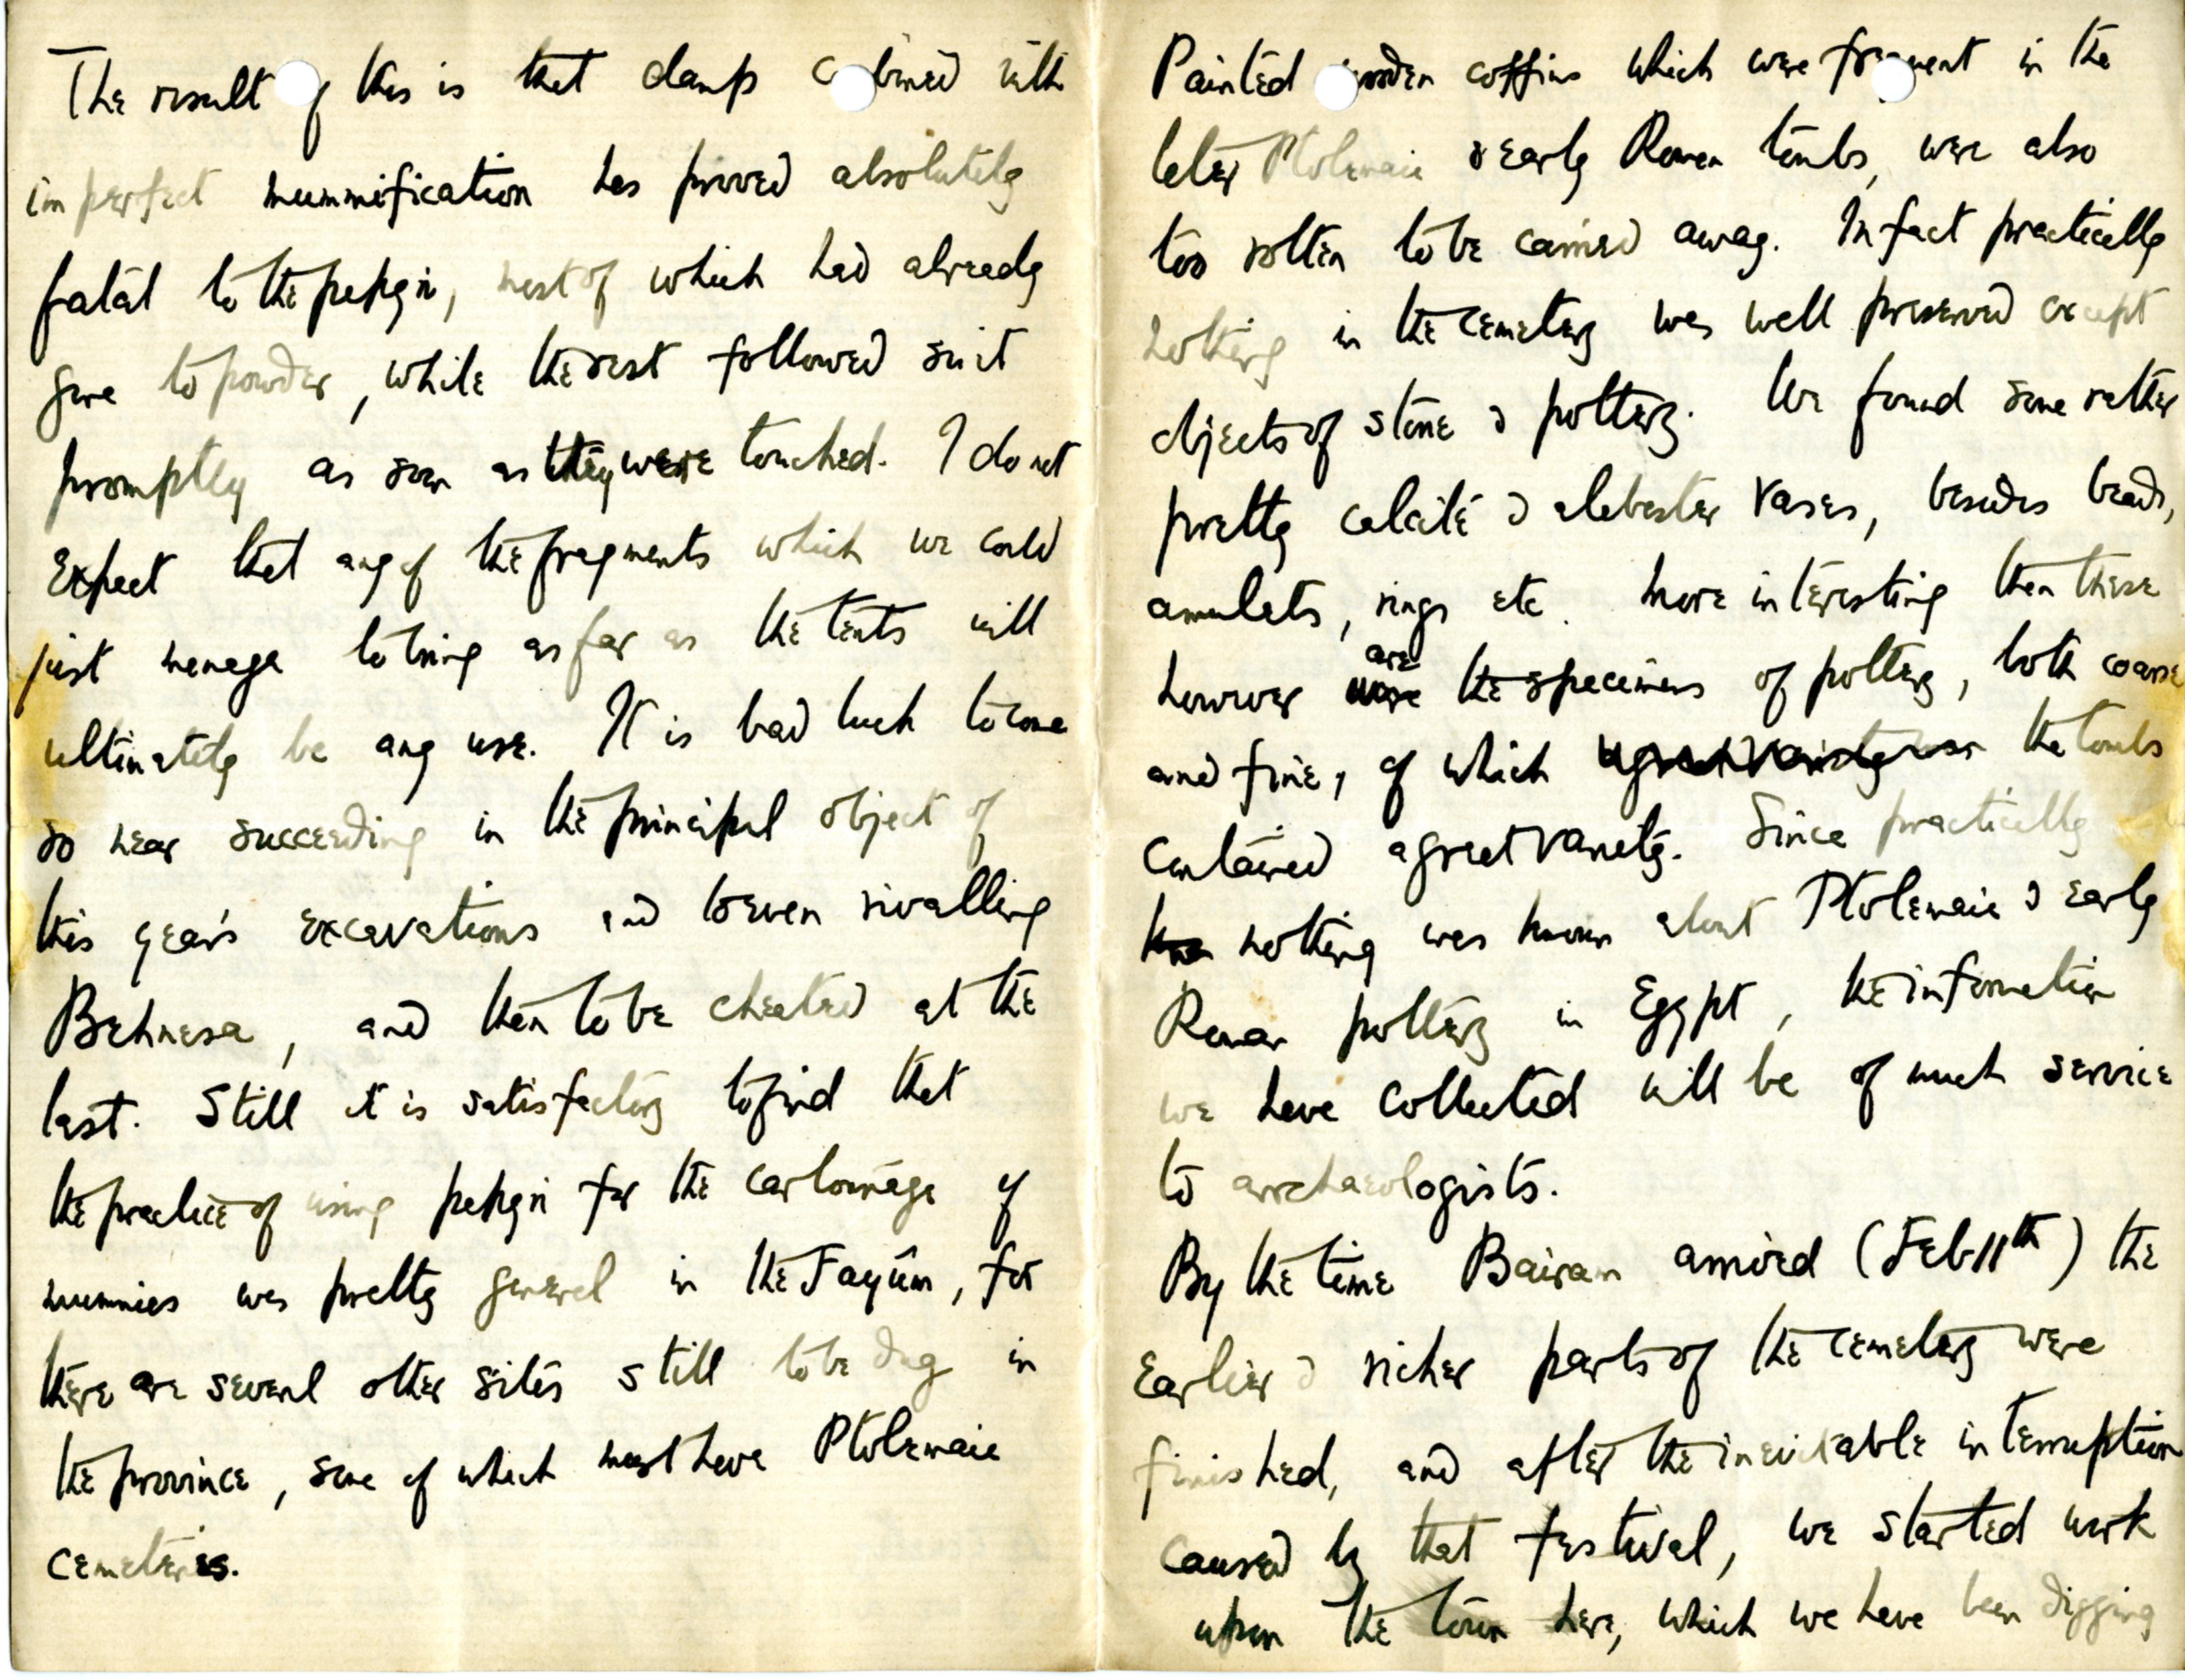 The result of this is that damp combined with
imperfect mummification has proved absolutely
fatal to the papyri, most of which had already
gone to powder, while the rest followed suit
promptly as soon as they were touched. I do not
expect that any of the fragments which we could
just manage to bring as far as the tents will
ultimately be any use. It is bad luck to come
so near succeeding in the principal object of
this year's excavations and to even rivalling
Behnesa, and then to be cheated at the
last. Still it is satisfactory to find that
the practice of using papyri for the cartonnage of
mummies was pretty general in the Fayûm, for
there are several other sites still to be dug in
the province, some of which must have Ptolemaic
cemeteries.
Painted wooden coffins which were frequent in the
later Ptolemaic & early Roman tombs, were also
too rotten to be carried away. In fact practically
nothing in the cemetery was well preserved except
objects of stone & pottery. We found some rather
pretty calcite & alabaster vases, besides beads,
amulets, rings etc. More interesting than these
however are the specimens of pottery, both coarse
and fine, of which a great variety was the tombs
contained a great variety. Since practically
nothing was known about Ptolemaic & early
Roman pottery in Egypt, the information
we have collected will be of much service
to archaeologists.
By the time Bairam arrived (Feb 11th) the
earlier & richer parts of the cemetery were
finished, and after the inevitable interruption
caused by that festival, we started work
upon the town here, which we have been digging